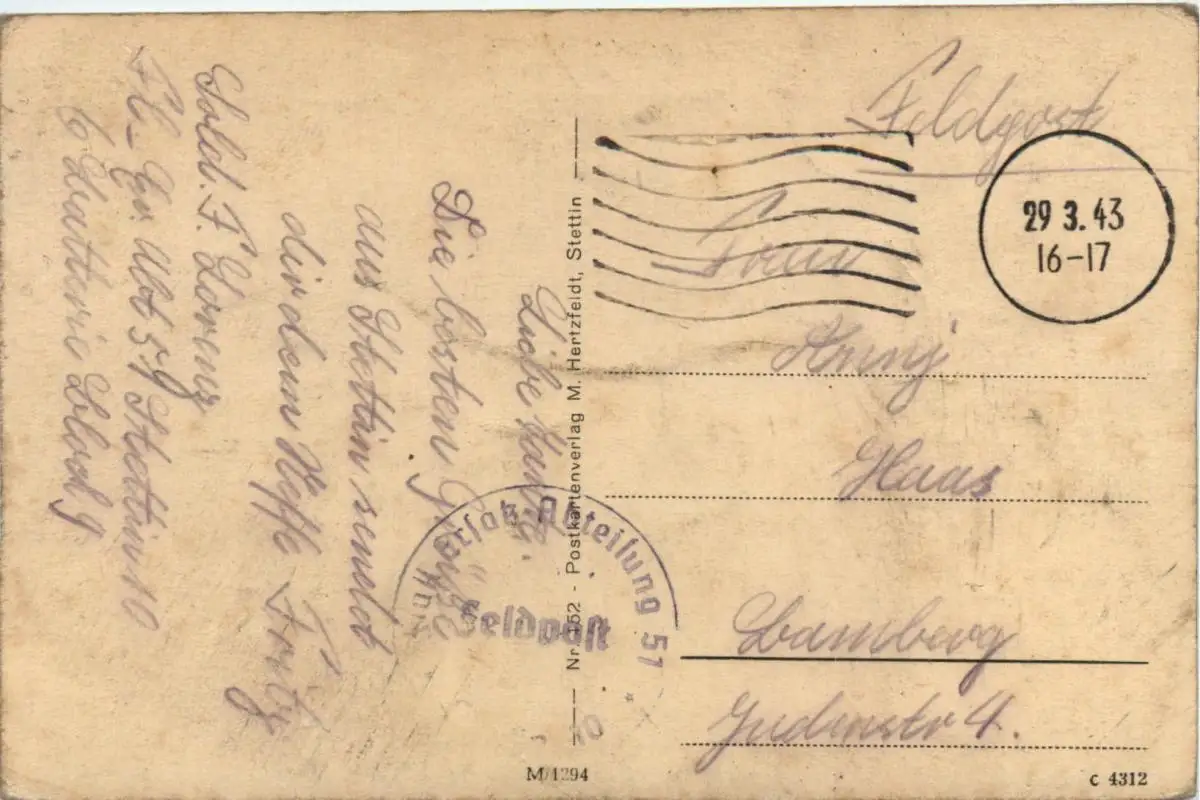 Feldpost
29 3. 43
16-17
Frau
Anny
Haas
Bamberg
Judenstr 4.
Liebe
Die besten Grüße
aus Stettin sendet
dir dein Neffe Fritz
Sold. F. Lorenz
Fl. - Ers. Abt 51 Stettin 10
6 Batterie Block 9
Flak-Ersatz-Abteilung 51
Feldpost
Nr. 152 - Postkartenverlag M. Hertzfeldt, Stettin
M/1294
C 4312